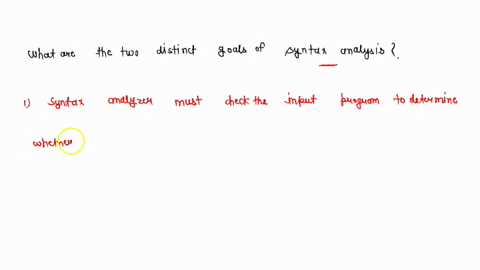 what are the two distinct goals of syntax analysis?.
1) syntax analyzer must check the input program to determine
whether